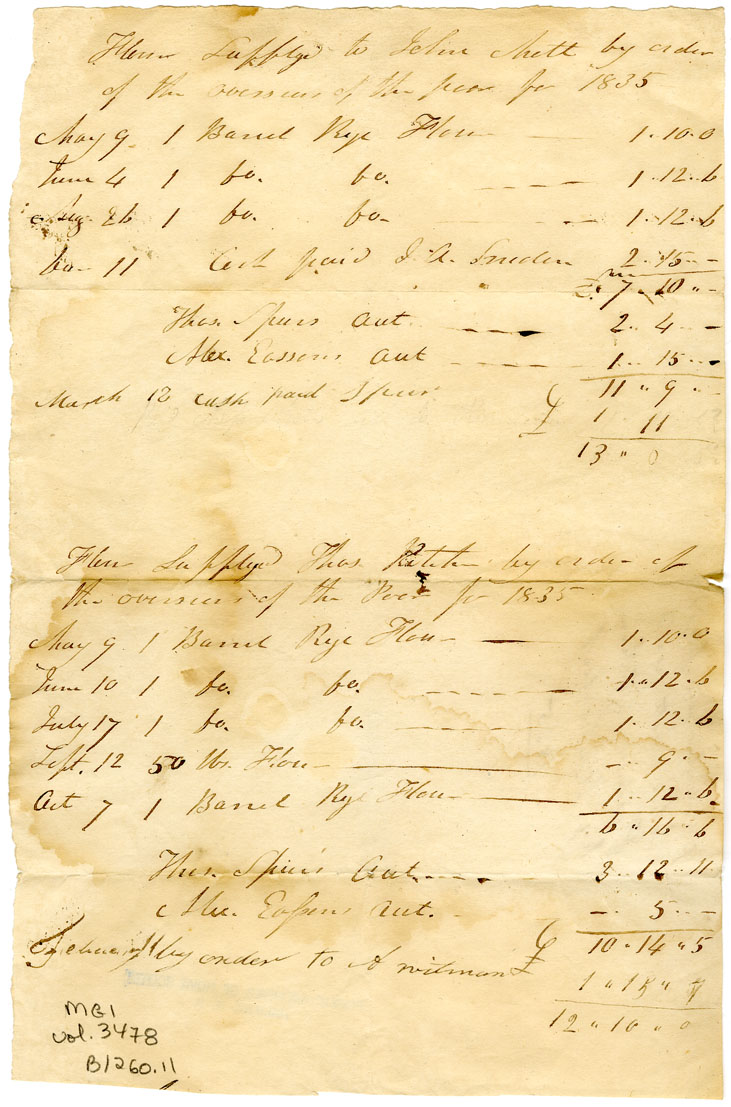 Flour Supplyd to John Mett by order
of the overseers of the poor for 1835
May 9 1 Barrel Rye Flour — 1..10..0
June 4 1 Do. Do. — 1..12..6
Aug. 26 1 Do. Do. — 1..12..6
Do 11 Cash paid J. A. 2..15..-
£ 7..10..-
Thos. Spurs aut. — 2..4..-
Alex. Eassons aut — 1..15..-
£ 11 " 9 " -
March 12 cash paid Spur £ 1 11
13 " 0
Flour Supplyd Thos. by order of
the overseers of the Poor for 1835
May 9 1 Barrel Rye Flour — 1..10..0
June 10 1 Do. Do. — 1..12..6
July 17 1 Do. Do. — 1..12..6
Sept. 12 50 lbs. Flour — -..9..-
Oct 7 1 Barrel Rye Flour — 1..12..6
6 " 16 " 6
Thos. Spurs aut. — 3..12..11
Alex. Eassons aut. -..5..-
£ 10 " 14 " 5
by order to A £ 1 " 15 " 7
12 " 10 " 0
MG1
vol. 3478
B1260.11